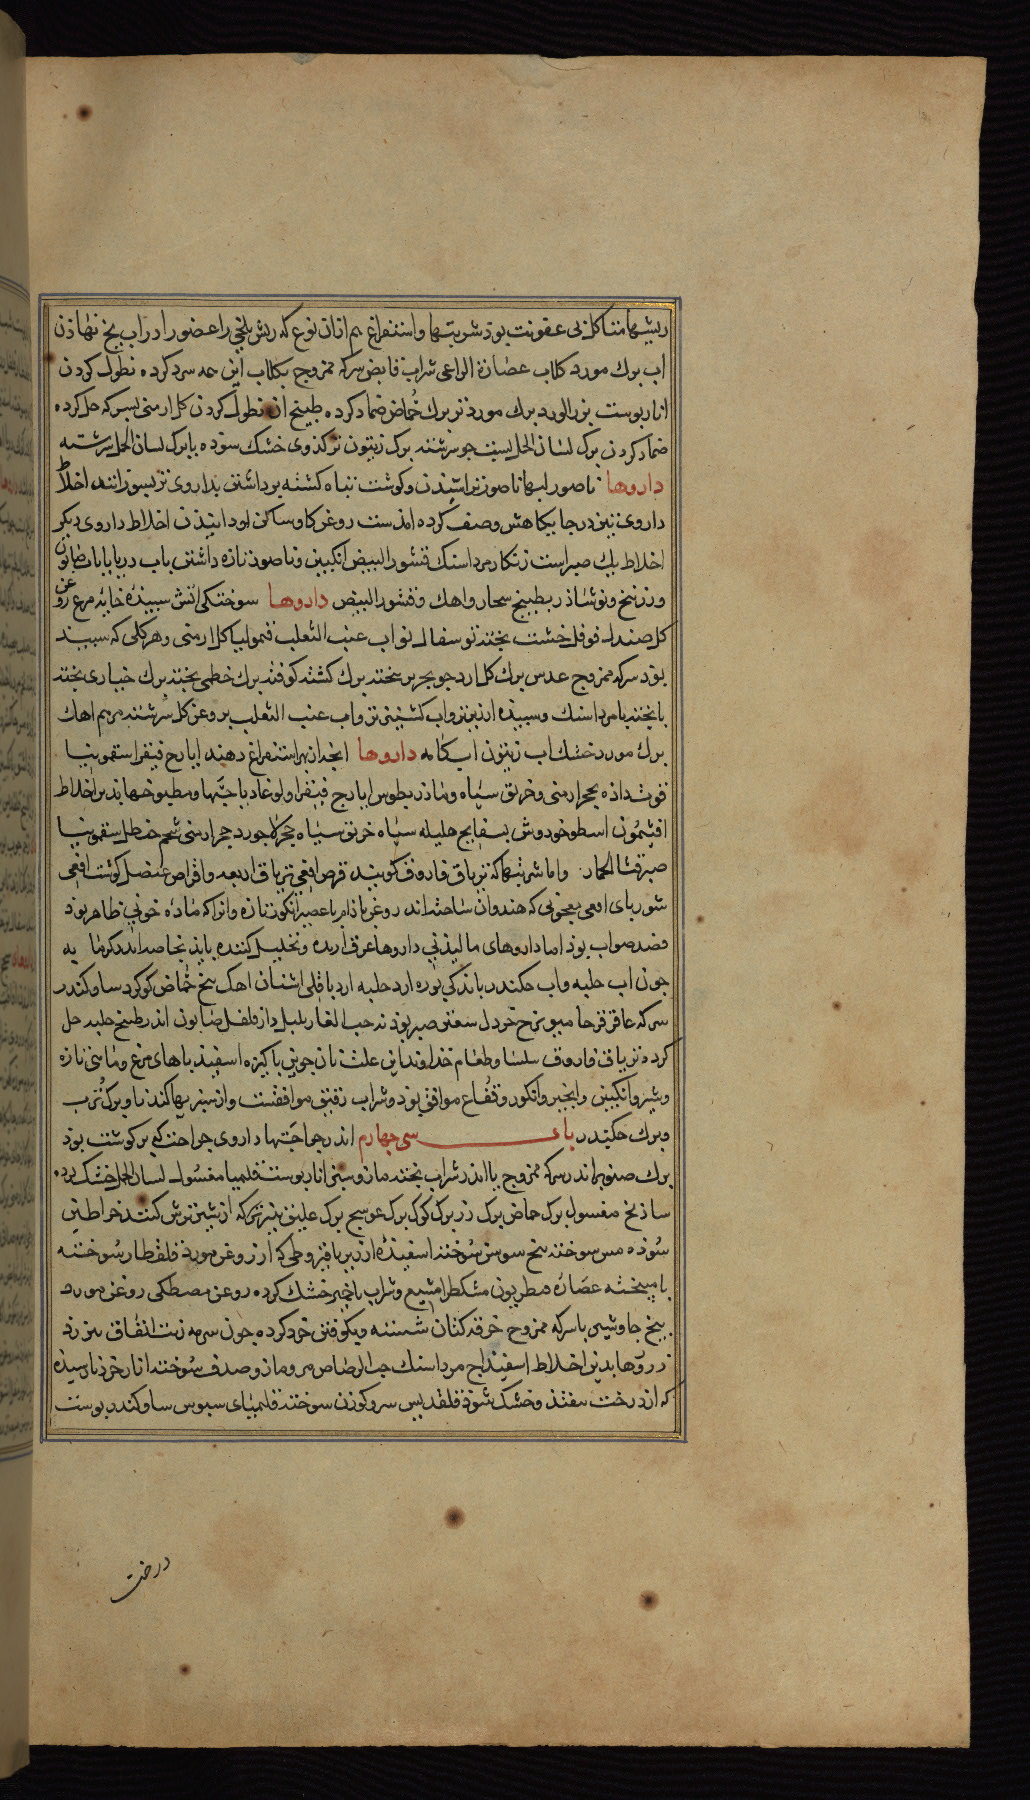 ریشها متاکل بی عفونت بود شربتها و استفراغ هم ازان نوع که ریش بلخی را عضو را در اب یخ نهاذن
اب برك مورد کلاب عصارة الراعی شراب قابض سرکه ممزوج بکلاب این همه سرد کرده نطول کردن
انار پوست بزر الورد برك مورد تر برك حُماض ضماد کرده طبیخ ان نطول کردن کل ارمنی بسرکه حل کرده
ضماد کردن برك لسان الحمل بست جو سرشته برك زیتون تر کذوی خشك سوده با برك لسان الحمل سرشته
داروها ناصور لبها ناصور تراشیذن و کوشت تباه کشته برداشتن بداروی تیز بسوزانند اخلاط
داروی تیز در جایکاهش وصف کرده امذست روغن کاو ساکن لوداینیذن اخلاط داروی دیکر
اخلاط یك صبراست زنکار مرداسنك قشور البیض انکبین و ناصور تازه داشتن باب دریا با اب صابون
و زرنیخ و نوشاذر بطبیخ و اهك و قشور البیض داروها سوختکی اتش سبیذه خایه مرغ روغن
کل صندل فوفل خشت پخته نو سفال نو اب عنب الثعلب قیمولیا کل ارمنی و هر کلی که سپید
بود سرکه ممزوج عدس برك کل ارد جو برك کشته کوفته برك خطمی پخته برك خبازی پخته
یا پخته با مرداسنك و سبیذه ارزیز و اب کشنیز تر و اب عنب الثعلب بروغن کل سرشته مرهم اهك
برك مورد خشك اب زیتون ابکامه داروها انجه از بهر استفراغ دهند ایارج فیقرا سقمونیا
قوت داذه بحجر ارمنی و خربق سیاه و ثاذریطوس ایارج فیقرا و لوغاذیا حبّها و مطبوخها بدین اخلاط
افتیمُون اسطوخودوش بسفایج هلیله سیاه خربق سیاه حجر لاجورد حجر ارمنی شحم حنظل سقمونیا
صبر قثا الحمار و اما شربتها که تریاق فاروق کویند قرص افعی تریاق اربعه و اقراص عنصل کوشت افعی
شوربای افعی معجونی که هندوان ساخته اند روغن باذام با عصیر انکور تازه و انرا که مادّه خونی ظاهر بوذ
فصد صواب بوذ اما داروهای مالیذنی داروها عرق ارنده و تحلیل کننده بایذ بخاصه اندر کرمابه
جون اب حلبه و اب جکندر با اندکی بوره ارد حلبه ارد باقلی اشنان اهك بیخ حُماض کوکرد ساو کندر
سرکه عاقرقرحا میویزج خردل سعتر صبر بوذنه حب الغار بلبل دارفلفل صابون اندر طبیخ حلبه حل
کرده تریاق فاروق سلسا و طعام خداوندان این علت نان جوین باکیزه اسفیذباهای مرغ و ماهی تازه
و شیر و انکبین و انجیر و انکور و فقاع موافق بوذ و شراب رقیق موافقست و از سبزیها کندنا و برك تُرب
و برك جکندر باب سی چهارم اندر جراحتها داروی جراحت که بر کوشت بوذ
برك صنوبر اندر سرکه ممزوج یا اندر شراب پخته مازو سبز انار پوست قلیمیا مغسول لسان الحمل خشك کرده
ساذنج مغسول برك حماض برك رز برك کوك برك عوسج برك علیق پنیر تر که از شیر ترش کنند خراطین
سُوذه مس سوخته بیخ سوسن سُوخته اسفیذه ارزیز با قیروطی که از روغن مورد قلقطار سُوخته
با میبخته عصاره قنطریون مشکطرامشیع و شراب با انجیر خشك کرده روغن مصطکی روغن مورد
بیخ جاوشیر با سرکه ممزوج خرقه کتان شسته و بکوفتن خرد کرده جون سرمه زیت انفاق مرزد
زردها بدین اخلاط اسفیذاج مرداسنك خبث الرصاص مر و مازو صدف سُوخته انار خرذ نارسیذه
که از درخت بیفتذ و خشك شوذ قلقدیس سرو کوزن سوخته قلیمیای سبوس ساو کندر بوست
درخت